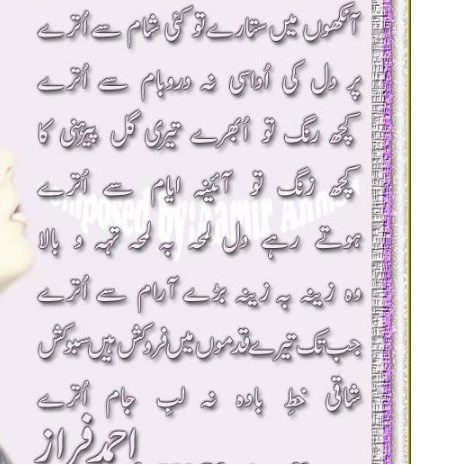 آنکھوں میں ستارے تو کئی شام سے اُترے
پر دل کی اُداسی نہ دروبام سے اُترے
کچھ رنگ تو اُبھرے تیری گل پیرہنی کا
کچھ زنگ تو آئینہِ ایام سے اُترے
ہوتے رہے دل لمحہ بہ لمحہ تہہ و بالا
وہ زینہ بہ زینہ بڑے آرام سے اُترے
جب تک تیرے قدموں میں فروکش ہیں سبوکش
شاقی خطِ بادہ نہ لب جام اُترے
احمد فراز